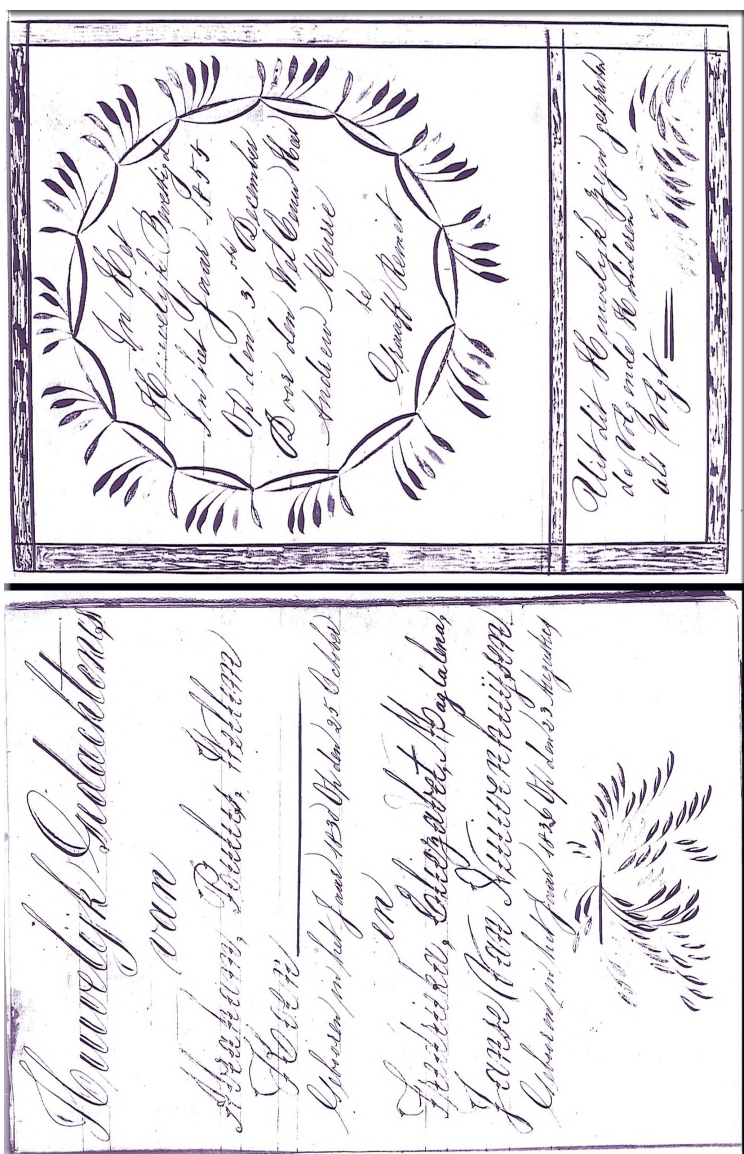 Huwelijk Gidachtenis
van
Abraham, Paulus, Willem
Geboren in het Jaar 1830 Op den 25 October
en
Fredrieka, Elizabet, Maglalena,
Janse Van Nieuwenhuijsen
Geboren in het Jaar 1836 Op den 23 Augustus
In Het
Huwelijk Bevestigd
In het Jaar 1855
Op den 31 ste December
Door den
Andrew Murie
te
Graaff Reinet
Uit dit Huwelijk zijn gesproten
de volgende Kinderen
als Volgt